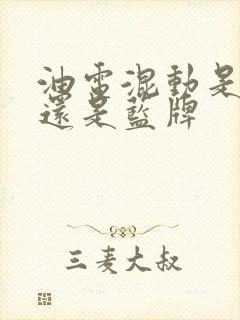 油電混動是
還是藍牌
三麦大叔